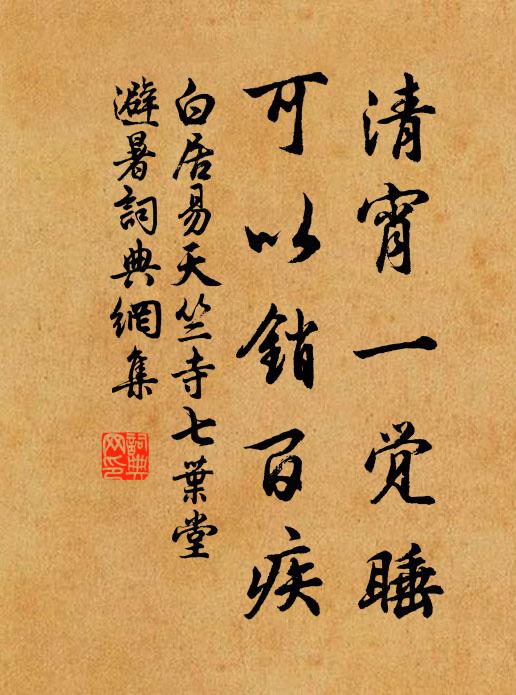 清宵一觉睡
可以銷百疾
白居易天竺寺七葉堂
避暑詞典網集
詞典网印